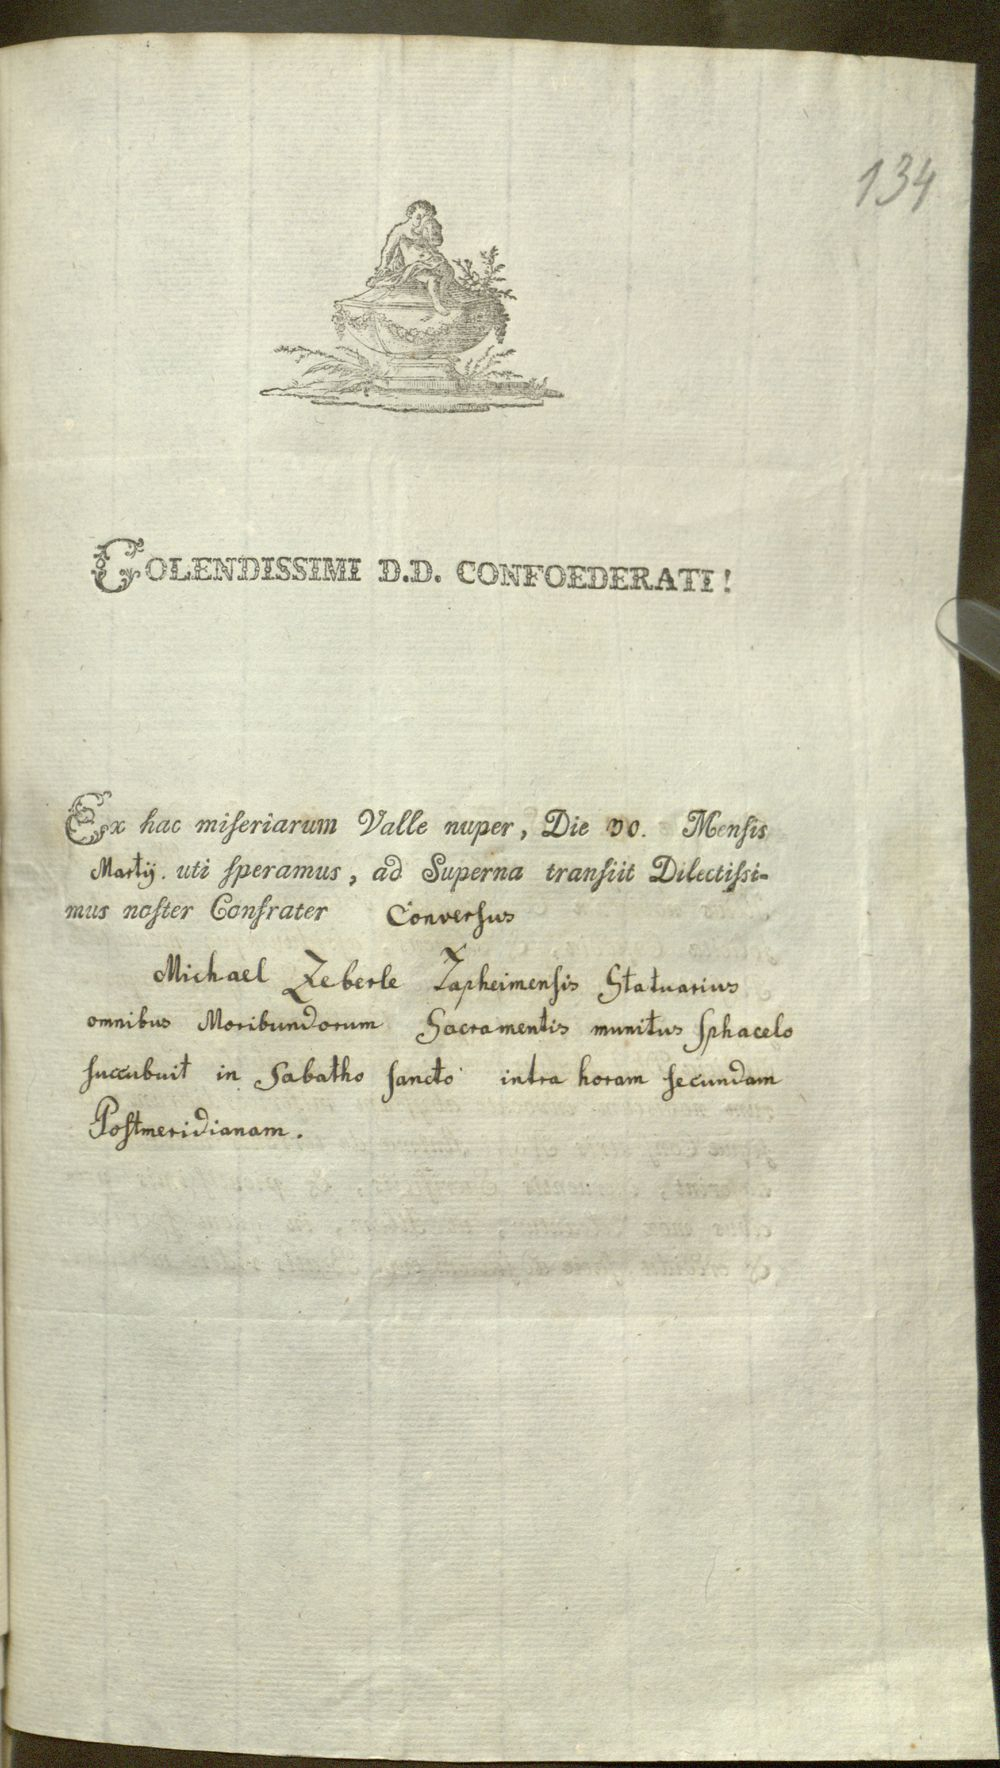 134
COLENDISSIMI D.D. CONFOEDERATI!
Ex hac miſeriarum Valle nuper, Die 30. Menſis
Martij. uti ſperamus, ad Superna tranſiit Dilectiſſi-
mus noſter Confrater Converſus
Michael Zeberle Tapheimenſis Statuarius
omnibus Moribundorum Sacramentis munitus ſphacelo
ſuccubuit in Sabatho ſancto intra horam ſecundam
Poſtmeridianam.